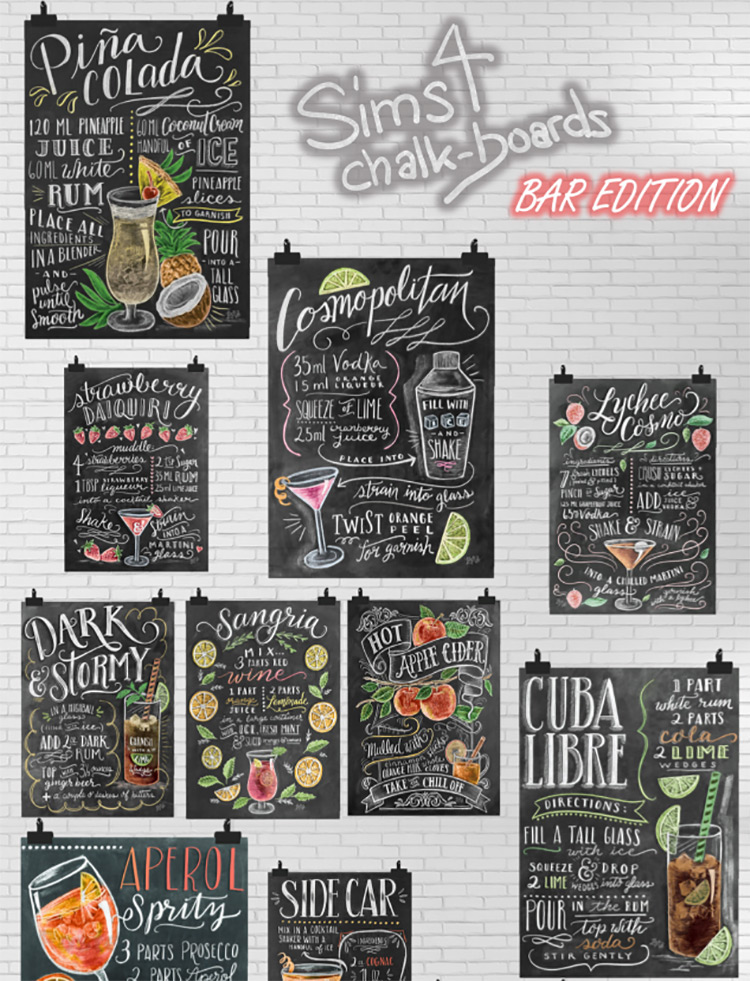 Piña
COLADA
120 ML PINEAPPLE
JUICE
60 ML White
RUM
PLACE ALL
INGREDIENTS
IN A BLENDER
-AND-
pulse
until
Smooth
60 ML Coconut Cream
HANDFUL OF ICE
PINEAPPLE
slices
TO GARNISH
POUR
INTO A
TALL
GLASS
Sims 4
chalk-boards
BAR EDITION
Cosmopolitan
35ml Vodka
15 ml ORANGE LIQUEUR
SQUEEZE OF LIME
25ml cranberry juice
PLACE INTO
FILL WITH
ICE
-AND-
SHAKE
strain into glass
TWIST ORANGE
PEEL
for garnish
strawberry
DAIQUIRI
muddle
4 strawberries
1 TBSP STRAWBERRY Liqueur
2 tsp Sugar
35 ML RUM
25ml LIME JUICE
into a cocktail shaker
Shake
&
Strain
INTO A
MARTINI
glass
Lychee
Cosmo
ingredients
PINCH of Sugar
Vodka
directions
CRUSH LYCHEES &
SUGAR
ADD ice
SHAKE & STRAIN
INTO A CHILLED MARTINI
glass
garnish
with a lychee
DARK
& STORMY
IN A HIGHBALL
glass
ADD 2 oz DARK
RUM
TOP WITH
ginger beer
+ a couple of dashes of bitters
GARNISH
WITH A
Sangria
MIX...
3 PARTS RED
wine
1 PART
JUICE
2 PARTS
Lemonade
in a large container
WITH ICE, FRESH MINT
& SLICED
HOT
APPLE CIDER
Mulled with
cinnamon sticks
ORANGE PEEL
TAKE THE CHILL OFF
CUBA
LIBRE
1 PART
white rum
2 PARTS
cola
2 LIME
WEDGES
DIRECTIONS:
FILL A TALL GLASS
with ice
SQUEEZE & DROP
2 LIME WEDGES into glass
POUR IN the RUM
top with
soda
STIR GENTLY
APEROL
Spritz
3 PARTS PROSECCO
2 PARTS Aperol
SIDE CAR
MIX IN A COCKTAIL
SHAKER WITH A
HANDFUL of ICE
INGREDIENTS
2 oz COGNAC